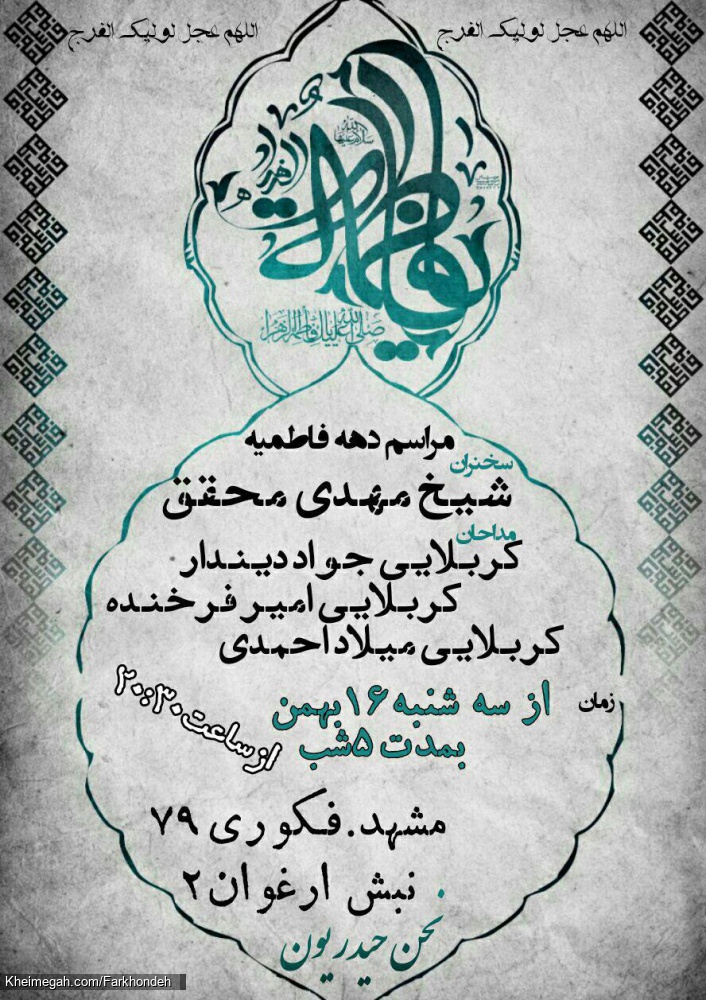 اللهم عجل لولیک الفرج
اللهم عجل لولیک الفرج
سلام الله علیها
صلی الله علیک یا فاطمة الزهرا
مراسم دهه فاطمیه
سخنران
شیخ مهدی محقق
مداحان
کربلایی جواد دیندار
کربلایی امیر فرخنده
کربلایی میلاد احمدی
زمان
از سه شنبه ۱۶ بهمن
بمدت ۵ شب
از ساعت ۲۰:۳۰
مشهد. فکوری ۷۹
نبش ارغوان ۲
نحن حیدریون
Kheimegah.com/Farkhondeh